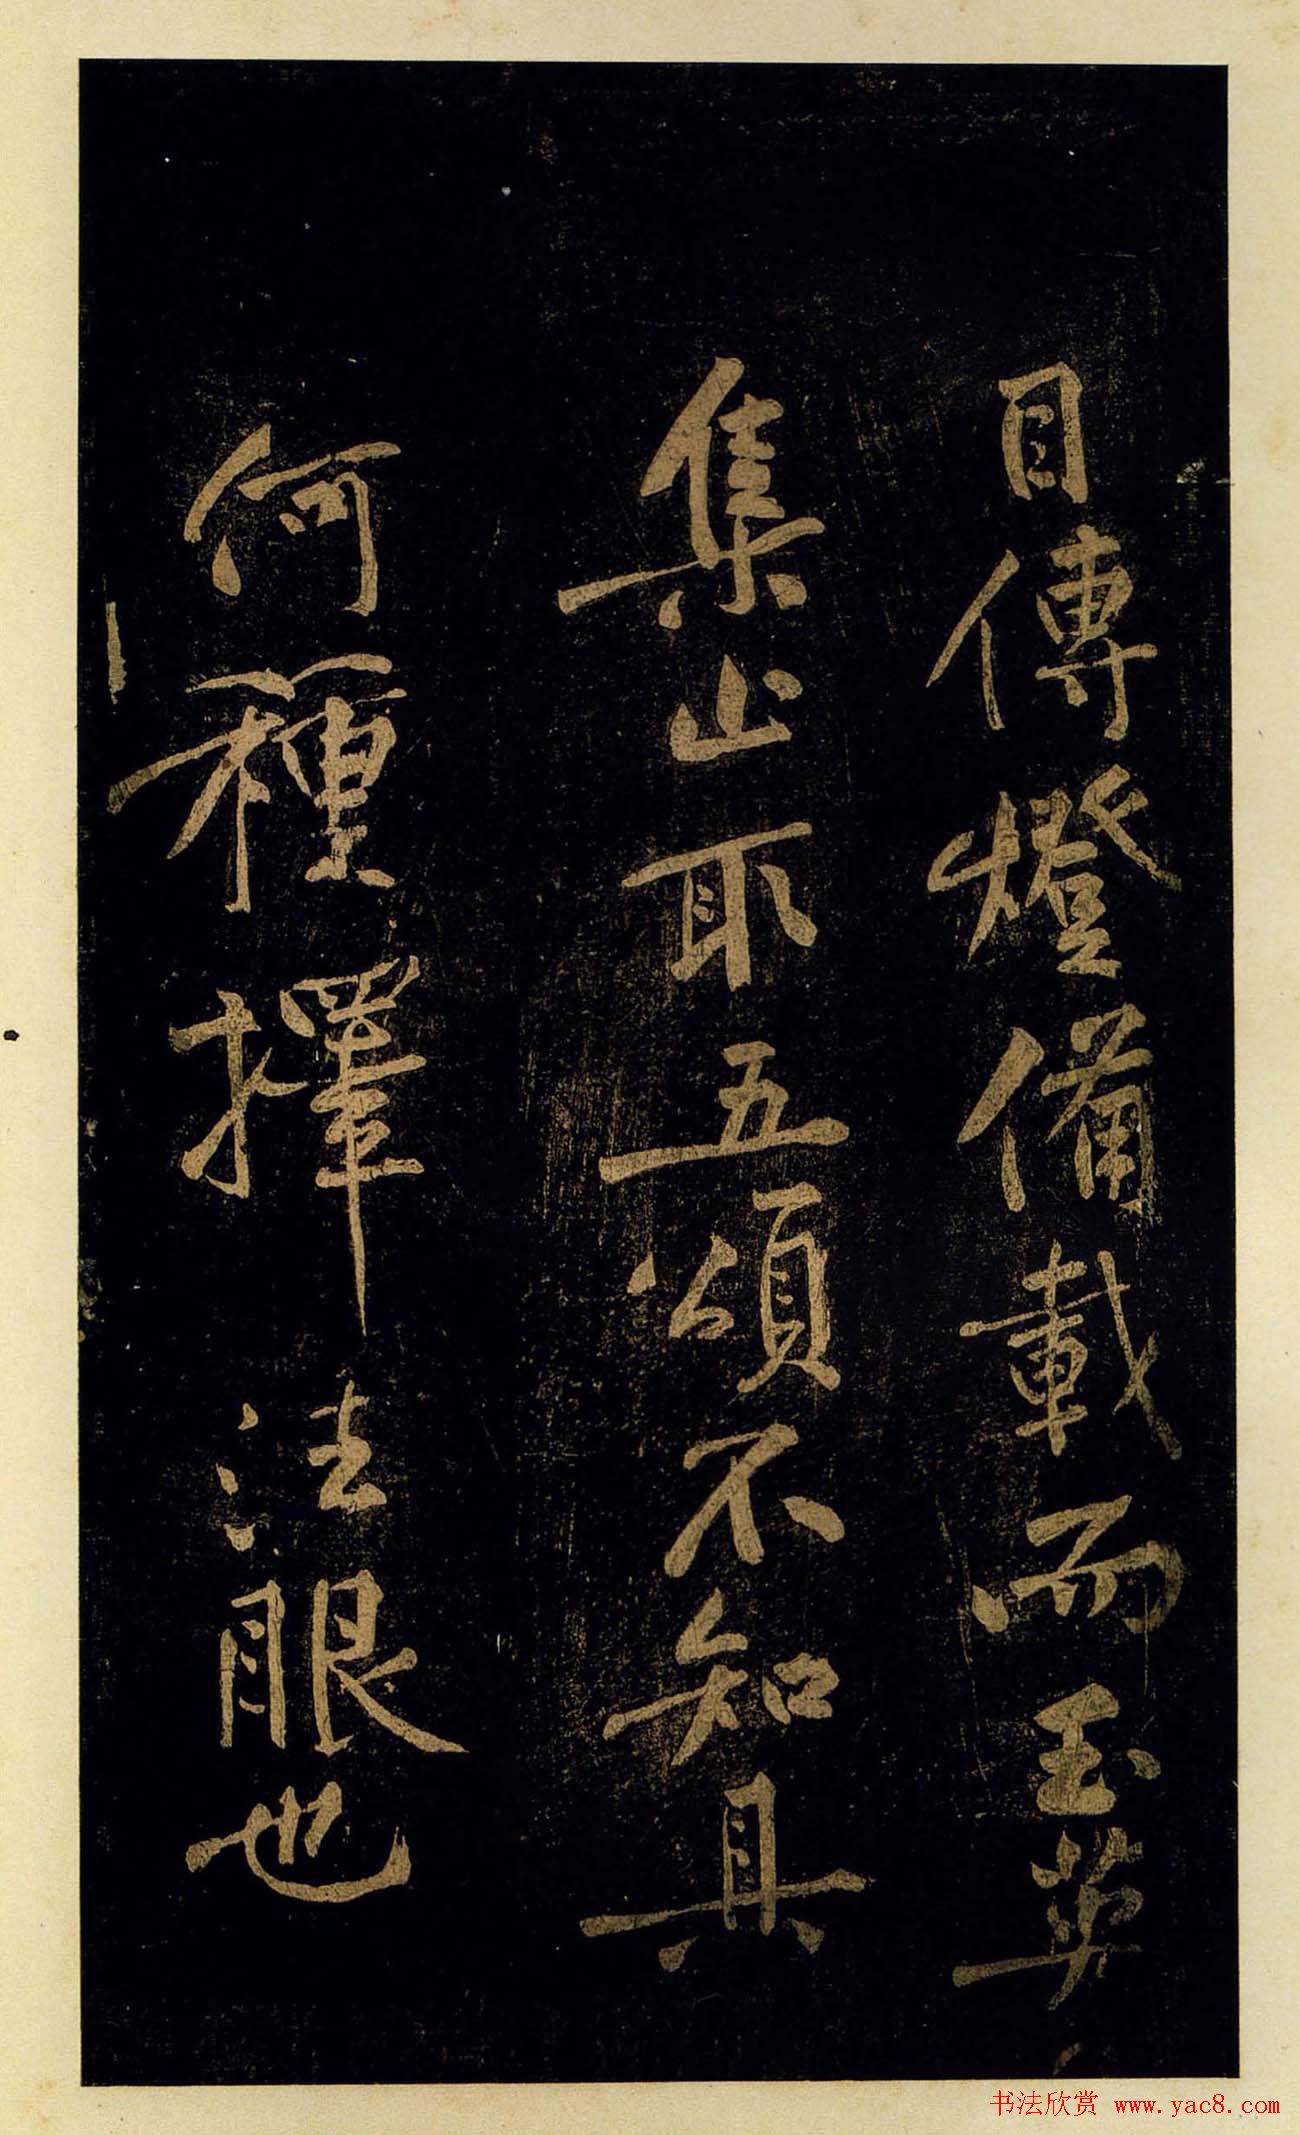 目傳燈備載而玉英
集止取五頌不知具
何種擇法眼也
书法欣赏 www.yac8.com